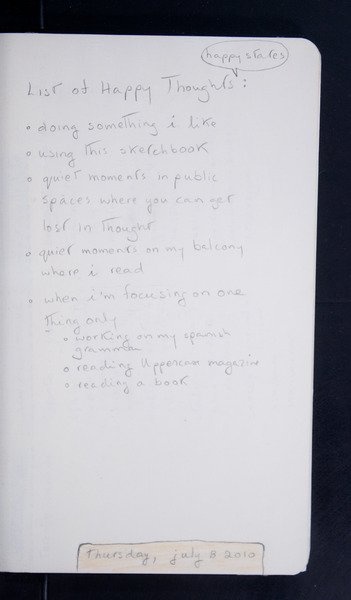 happy states
List of Happy Thoughts:
• doing something i like
• using this sketchbook
• quiet moments in public
spaces where you can get
lost in thought
• quiet moments on my balcony
where i read
• when i'm focusing on one
thing only
• working on my spanish
grammar
• reading Uppercase magazine
• reading a book
Thursday, july 8 2010